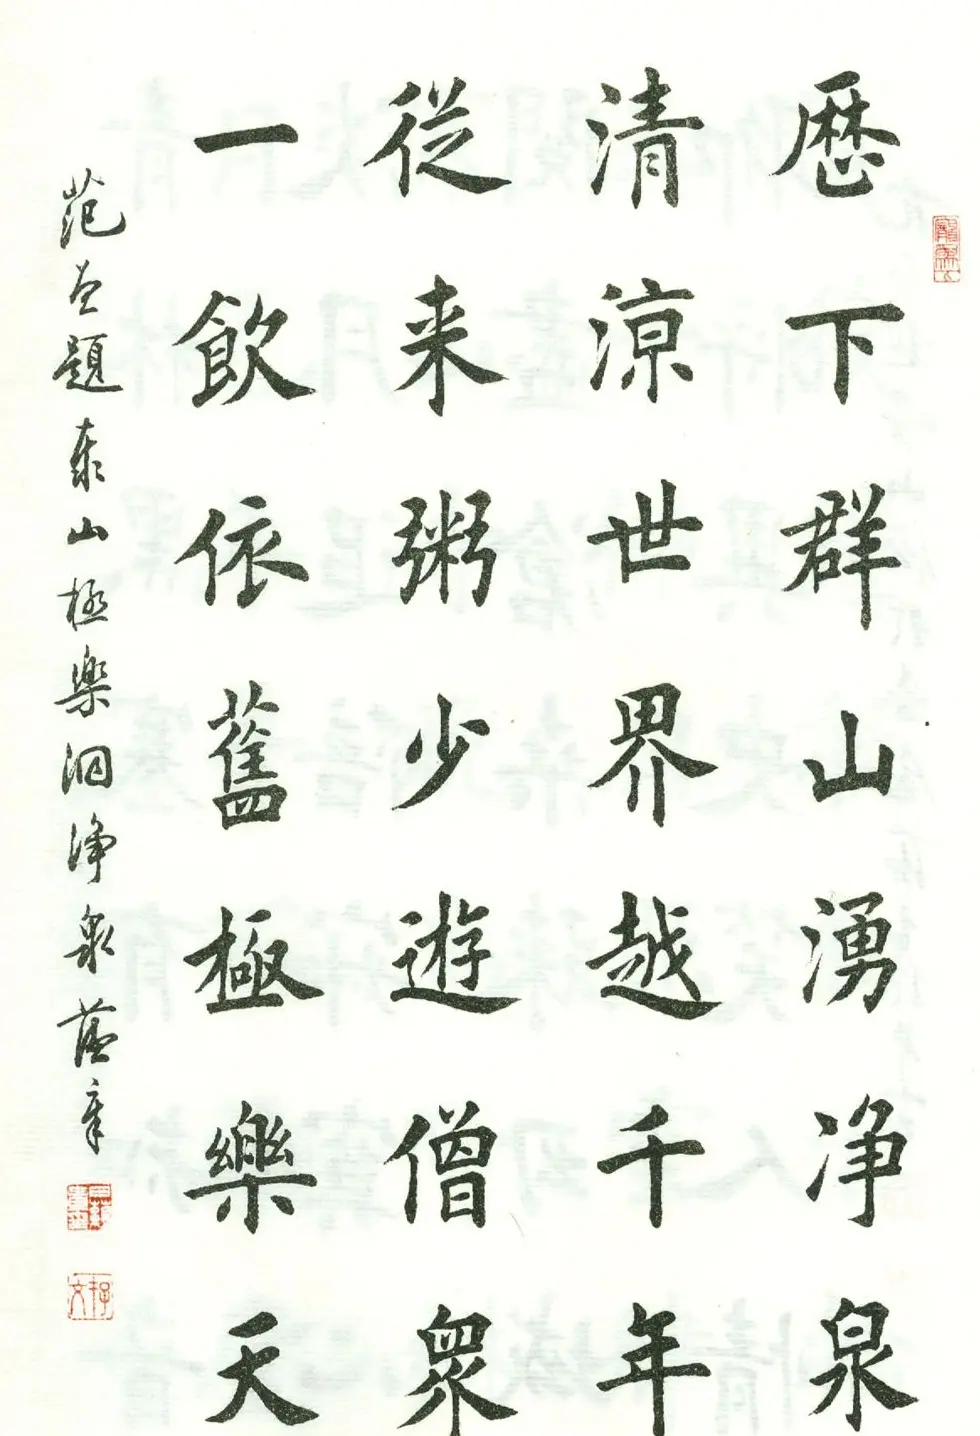 歷下群山湧净泉
清涼世界越千年
從來粥少遊僧衆
一飲依舊極樂天
范曾題泰山極樂洞净泉 蔭章